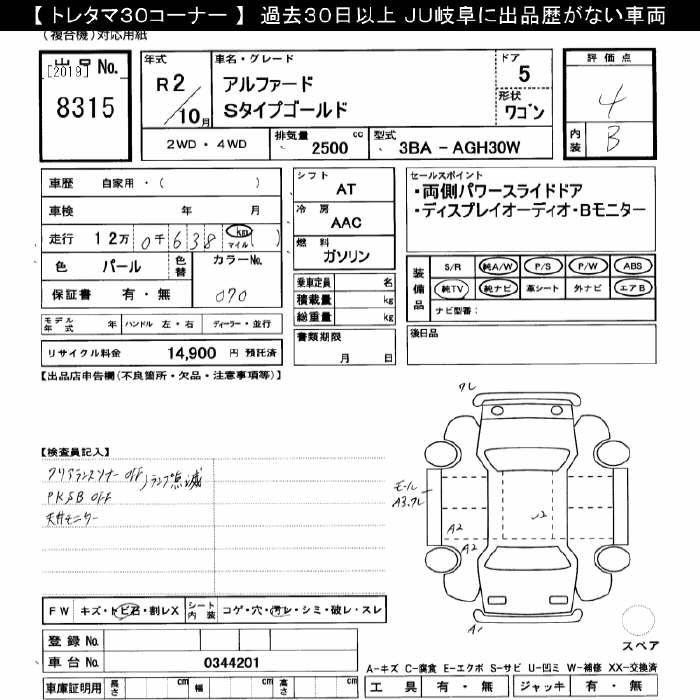 【 トレタマ30コーナー 】 過去30日以上 JU岐阜に出品歴がない車両
(複合機)対応用紙
出品 No.
[2019]
8315
年式
R 2 / 10 月
車名・グレード
アルファード
Sタイプゴールド
ドア
5
形状
ワゴン
2WD ・ 4WD
排気量 2500 cc
型式 3BA − AGH30W
評価点
4
内装
B
車歴 自家用・( )
車検 年 月
走行 12万 0千 638 km マイル ( )
色 パール
色替
カラーNo.
070
保証書 有 ・ 無
モデル年式 年
ハンドル 左・右
ディーラー・並行
リサイクル料金 14,900 円 預託済
シフト
AT
冷房
AAC
燃料
ガソリン
乗車定員 名
積載量 kg
総重量 kg
書類期限
月 日
セールスポイント
・両側パワースライドドア
・ディスプレイオーディオ・Bモニター
装備品
S/R 純A/W P/S P/W ABS
純TV 純ナビ 革シート 外ナビ エアB
ナビ型番:
後日品
【出品店申告欄(不良箇所・欠品・注意事項等)】
【検査員記入】
クリアランスソナー OFF
ランプ点滅
PKSB OFF
天井モニター
ワレ
モール
A3.ワレ
A2
A2
J2
A1
スペア
FW キズ・トビ石・割レX
シート内装 コゲ・穴・汚レ・シミ・破レ・スレ
登録 No.
車台 No. 0344201
車庫証明用 長さ cm 幅 cm 高さ cm
A−キズ C−腐食 E−エクボ S−サビ U−凹ミ W−補修 XX−交換済
工具 有 ・ 無 ジャッキ 有 ・ 無